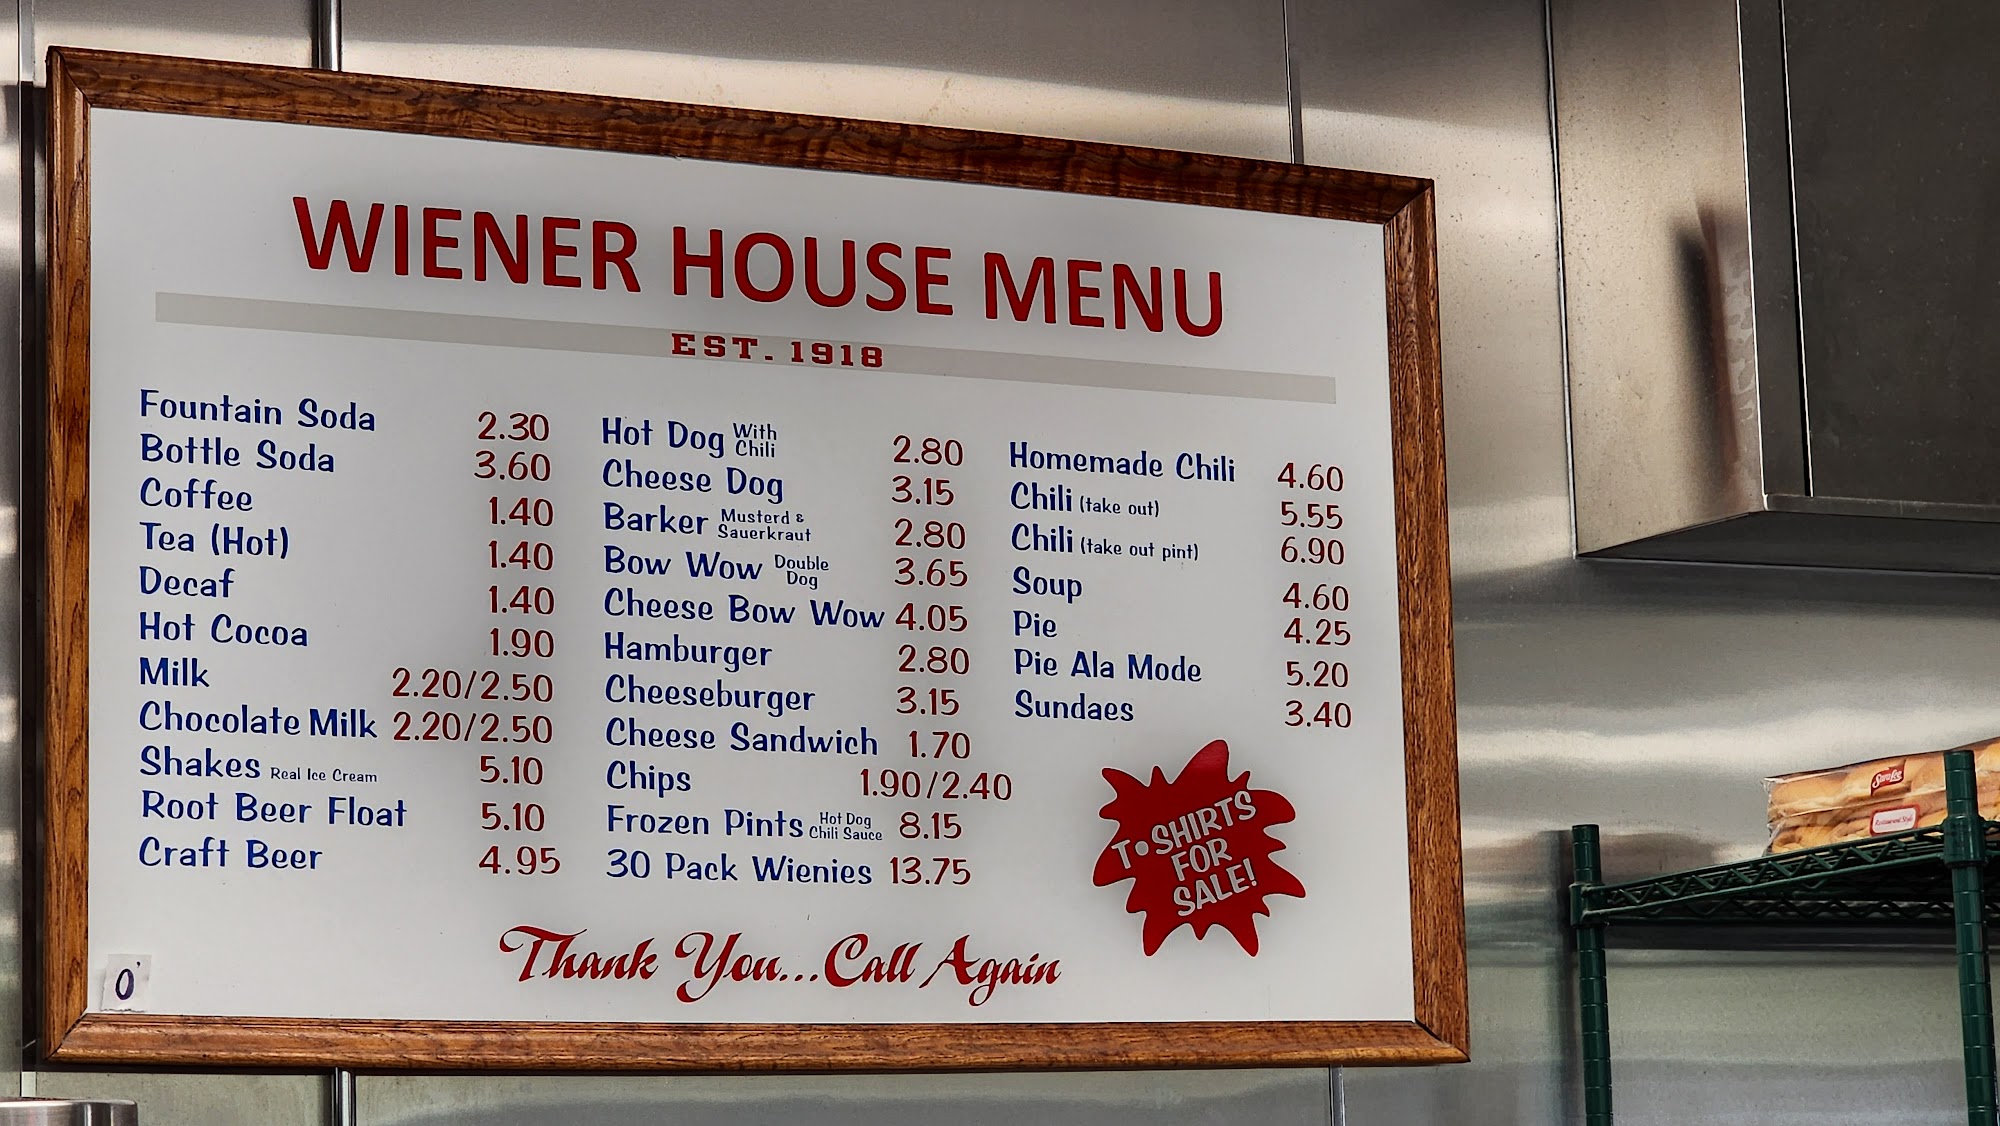 WIENER HOUSE MENU
EST. 1918
Fountain Soda 2.30
Bottle Soda 3.60
Coffee 1.40
Tea (Hot) 1.40
Decaf 1.40
Hot Cocoa 1.90
Milk 2.20/2.50
Chocolate Milk 2.20/2.50
Shakes Real Ice Cream 5.10
Root Beer Float 5.10
Craft Beer 4.95
Hot Dog With Chili 2.80
Cheese Dog 3.15
Barker Musterd & Sauerkraut 2.80
Bow Wow Double Dog 3.65
Cheese Bow Wow 4.05
Hamburger 2.80
Cheeseburger 3.15
Cheese Sandwich 1.70
Chips 1.90/2.40
Frozen Pints Hot Dog Chili Sauce 8.15
30 Pack Wienies 13.75
Homemade Chili 4.60
Chili (take out) 5.55
Chili (take out pint) 6.90
Soup 4.60
Pie 4.25
Pie Ala Mode 5.20
Sundaes 3.40
T•SHIRTS
FOR
SALE!
Thank You...Call Again
O'
Sara Lee
Restaurant Style